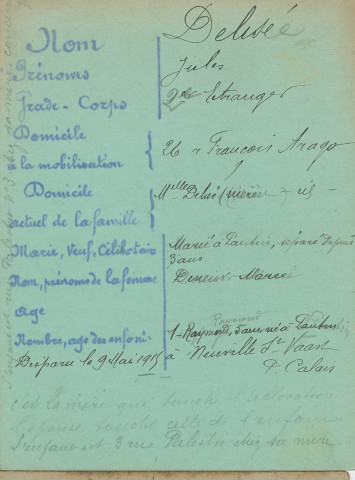 Nom Delisée
Prénoms Jules
Grade-Corps 2me Etranger
Domicile
à la mobilisation 26 r François Arago
Domicile
actuel de la famille Mlle Delisé (mère) - id -
Marié, Veuf, Célibataire Marié à Pantin, séparé depuis
3 ans
Nom, prénoms de la femme Marie
Age
Raymond
Nombre, age des enfants 1 - Raymond, 5 ans, né à Pantin
Disparu le 9 Mai 1915 à Neuville St Vaast
Pas Calais
c'est la mère qui touche l'allocation
l'épouse touche celle de l'enfant
L'enfant est 3 rue Palestro chez sa mère